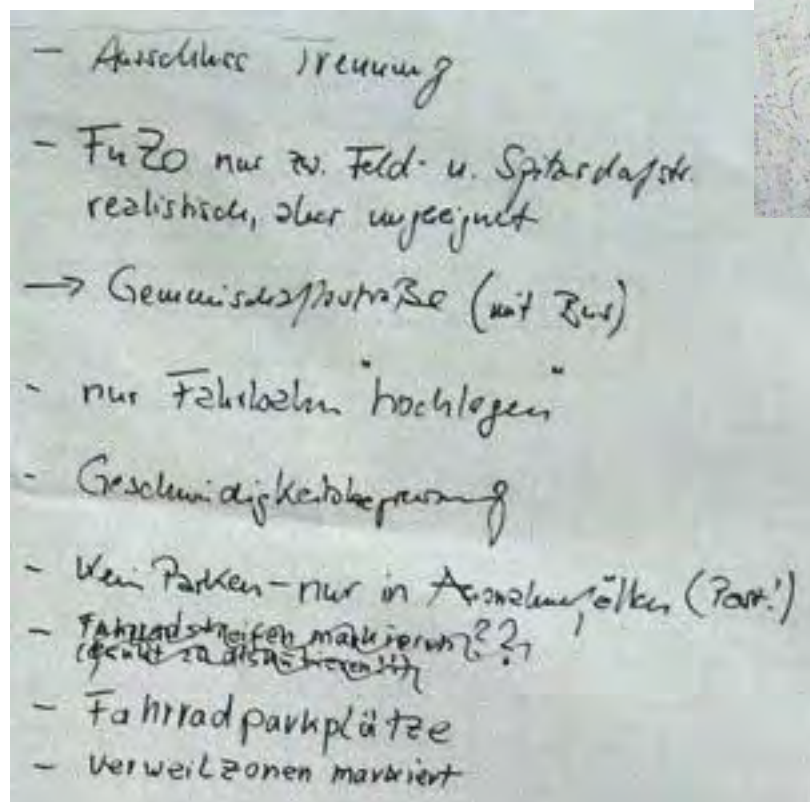 - Ausschluss Trennung
- FuZo nur zw. Feld- u. Spitalsdafstr.
realistisch, aber ungeeignet
→ Gemeinschaftsstraße (mit Bus)
- nur Fahrbahn "hochlegen"
- Geschwindigkeitsbegrenzung
- Kein Parken - nur in Ausnahmefällen (Post!)
- Fahrradstreifen markieren??
- Fahrradparkplätze
- Verweilzonen markiert